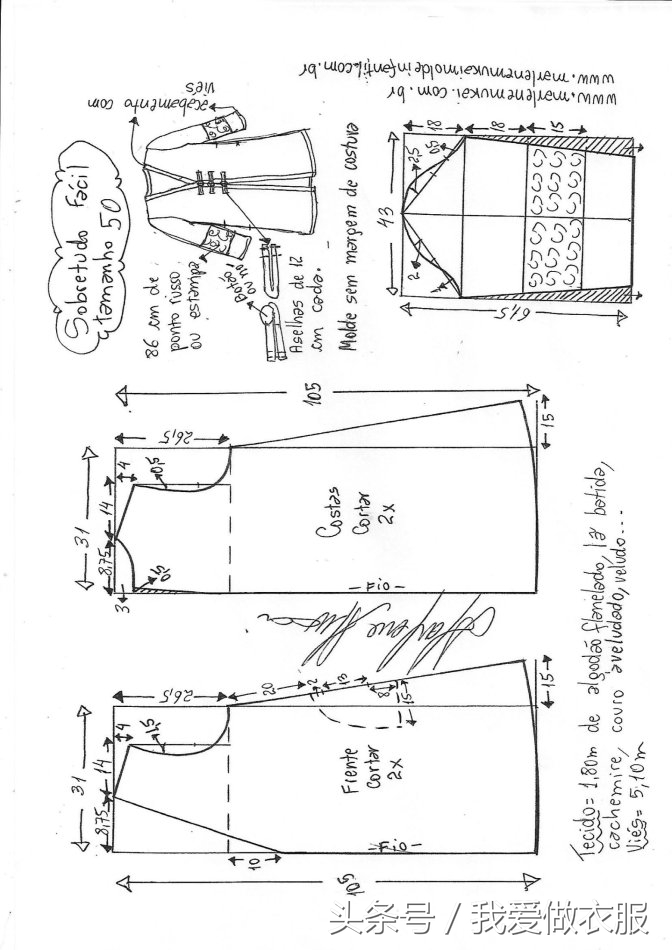 Sobretudo Fácil
tamanho 50
acabamento com
viés
www.marlenemukai.com.br
www.marlenemukaimoldeinfantil.com.br
86 cm de
ponto russo
ou estampa
Botão
ou nó
Aselhas de 12
cm cada.
Molde sem margem de costura
43
61,5
18
18
15
2,5
0,5
2
1
105
31
26,5
4
14
8,75
3
0,5
0,5
15
Costas
Cortar
2x
Fio
105
31
26,5
4
14
8,75
1,5
10
20
2
13
8
15
15
Frente
Cortar
2x
Fio
Tecido= 1,80m de algodão flanelado, lã batida,
cachemire, couro aveludado, veludo...
Viés= 5,10m
头条号 / 我爱做衣服